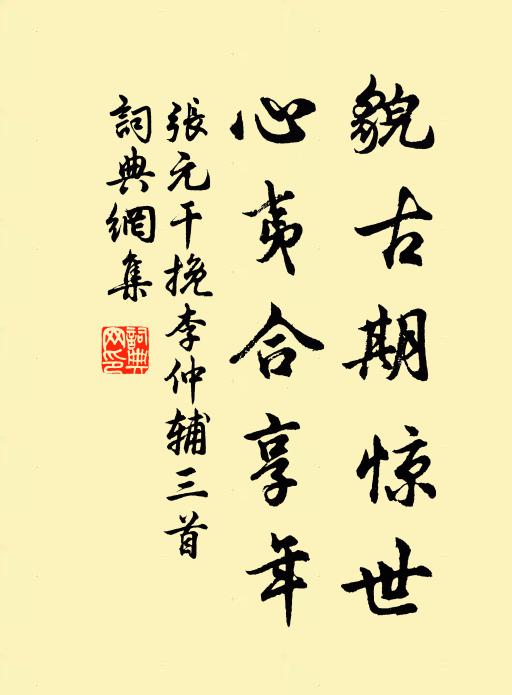 貌古期惊世
心夷合享年
張元干挽李仲辅三首
詞典網集
詞典网印